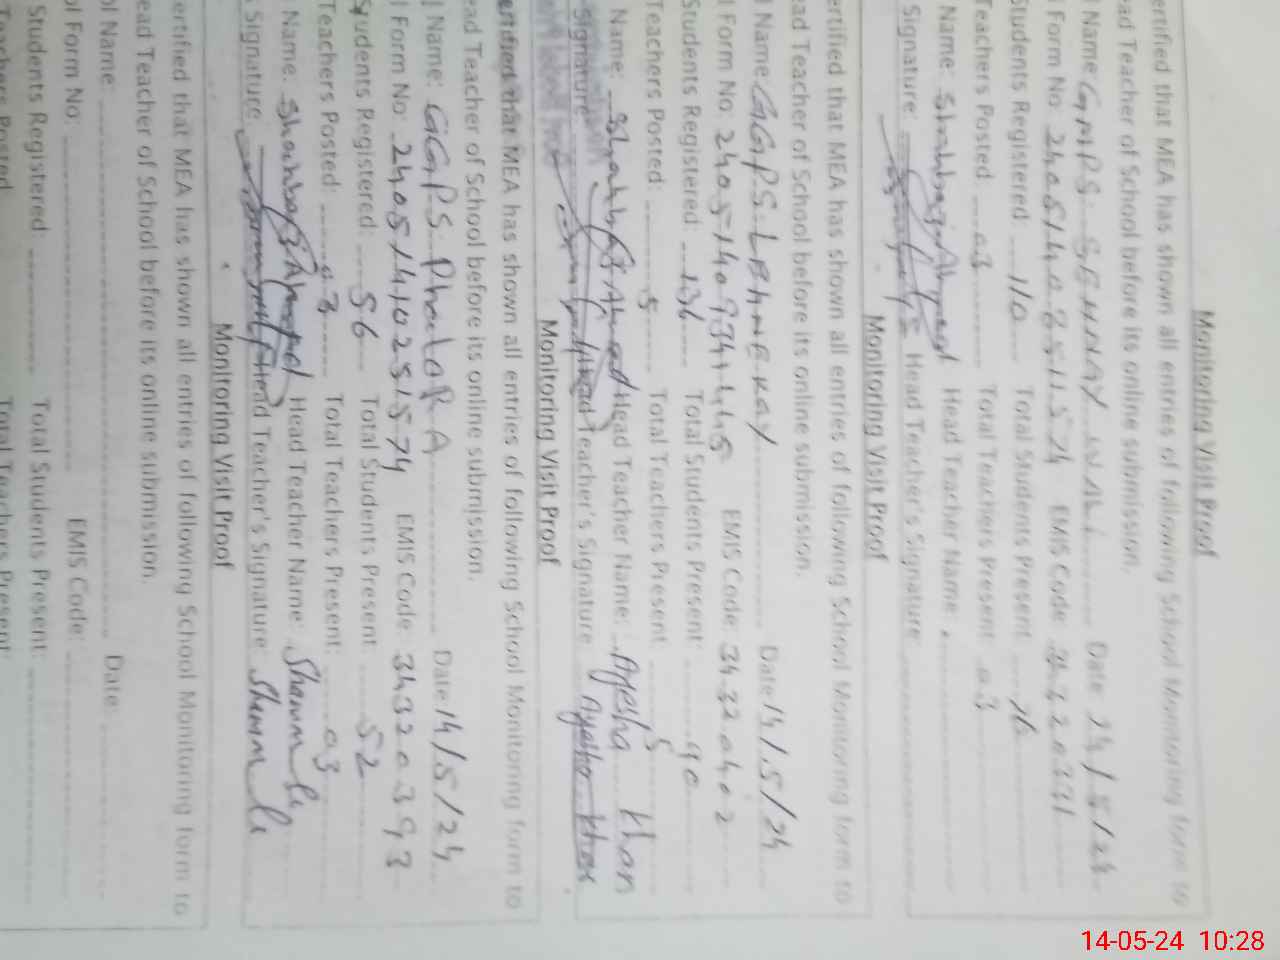 Monitoring Visit Proof
ertified that MEA has shown all entries of following School Monitoring form to
ead Teacher of School before its online submission.
l Name: GMPS Date 14/5/24
l Form No: EMIS Code
Students Registered 110 Total Students Present 76
Teachers Posted 03 Total Teachers Present 03
Name: Shahbaz Ahmad Head Teacher Name
Signature: Head Teacher's Signature
Monitoring Visit Proof
ertified that MEA has shown all entries of following School Monitoring form to
ead Teacher of School before its online submission.
l Name: GGPS Date: 14/5/24
l Form No: EMIS Code: 34320402
Students Registered: 136 Total Students Present: 90
Teachers Posted: 5 Total Teachers Present 5
Name: Shahbaz Ahmad Head Teacher Name: Ayesha Khan
Signature Head Teacher's Signature Ayesha Khan
Monitoring Visit Proof
ertified that MEA has shown all entries of following School Monitoring form to
ead Teacher of School before its online submission.
l Name: GGPS Date: 14/5/24
l Form No: 24051410251574 EMIS Code: 34320393
Students Registered: 56 Total Students Present 52
Teachers Posted: 03 Total Teachers Present: 03
Name: Shahbaz Ahmad Head Teacher Name:
Signature: Head Teacher's Signature:
Monitoring Visit Proof
ertified that MEA has shown all entries of following School Monitoring form to
ead Teacher of School before its online submission.
ol Name: Date:
ol Form No: EMIS Code:
Students Registered: Total Students Present:
Teachers Posted Total Teachers Present:
14-05-24 10:28